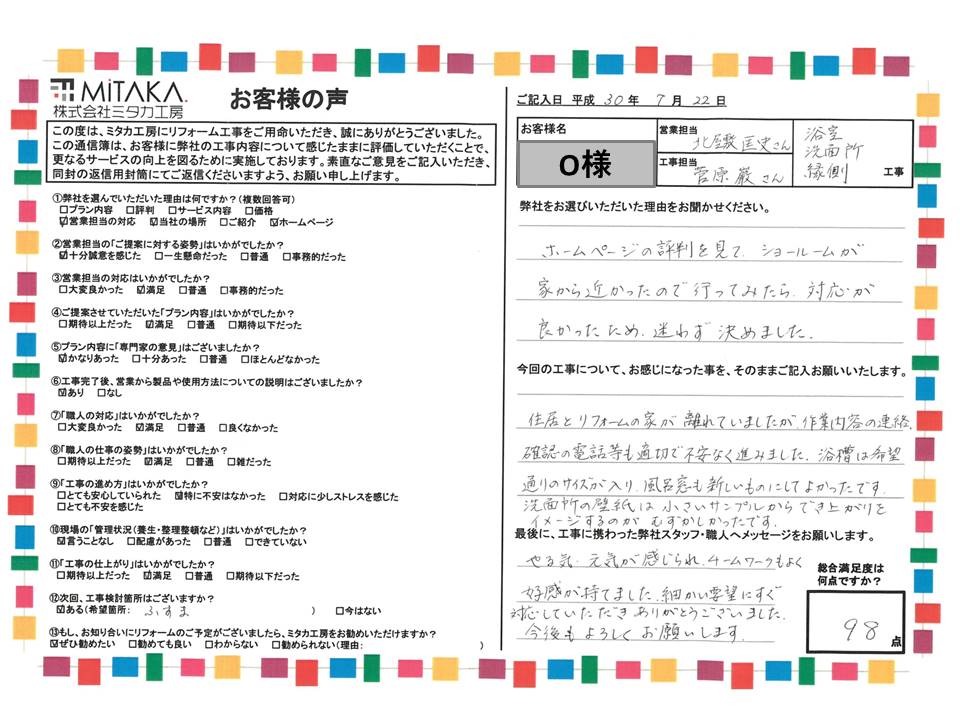 MiTAKA
株式会社ミタカ工房
お客様の声
この度は、ミタカ工房にリフォーム工事をご用命いただき、誠にありがとうございました。
この通信簿は、お客様に弊社の工事内容について感じたままに評価していただくことで、
更なるサービスの向上を図るために実施しております。素直なご意見をご記入いただき、
同封の返信用封筒にてご返信くださいますよう、お願い申し上げます。
①弊社を選んでいただいた理由は何ですか?(複数回答可)
□プラン内容 □評判 □サービス内容 □価格
☑営業担当の対応 ☑当社の場所 □ご紹介 ☑ホームページ
②営業担当の「ご提案に対する姿勢」はいかがでしたか?
☑十分誠意を感じた □一生懸命だった □普通 □事務的だった
③営業担当の対応はいかがでしたか?
□大変良かった ☑満足 □普通 □事務的だった
④ご提案させていただいた「プラン内容」はいかがでしたか?
□期待以上だった ☑満足 □普通 □期待以下だった
⑤プラン内容に「専門家の意見」はございましたか?
☑かなりあった □十分あった □普通 □ほとんどなかった
⑥工事完了後、営業から製品や使用方法についての説明はございましたか?
☑あり □なし
⑦「職人の対応」はいかがでしたか?
□大変良かった ☑満足 □普通 □良くなかった
⑧「職人の仕事の姿勢」はいかがでしたか?
□期待以上だった ☑満足 □普通 □雑だった
⑨「工事の進め方」はいかがでしたか?
□とても安心していられた ☑特に不安はなかった □対応に少しストレスを感じた
□とても不安を感じた
⑩現場の「管理状況(養生・整理整頓など)」はいかがでしたか?
☑言うことなし □配慮があった □普通 □できていない
⑪「工事の仕上がり」はいかがでしたか?
□期待以上だった ☑満足 □普通 □期待以下だった
⑫次回、工事検討箇所はございますか?
☑ある(希望箇所: ふすま ) □今はない
⑬もし、お知り合いにリフォームのご予定がございましたら、ミタカ工房をお勧めいただけますか?
☑ぜひ勧めたい □勧めても良い □わからない □勧められない(理由: )
ご記入日 平成 30 年 7 月 22 日
お客様名
O様
営業担当
北殿 匡史さん
工事担当
菅原 巌さん
浴室
洗面所
縁側 工事
弊社をお選びいただいた理由をお聞かせください。
ホームページの評判を見て、ショールームが
家から近かったので行ってみたら、対応が
良かったため、迷わず決めました。
今回の工事について、お感じになった事を、そのままご記入お願いいたします。
住居とリフォームの家が離れていましたが、作業内容の連絡、
確認の電話等も適切で不安なく進みました。浴槽は希望
通りのサイズが入り、風呂窓も新しいものにしてよかったです。
洗面所の壁紙は小さいサンプルからでき上がりを
イメージするのがむずかしかったです。
最後に、工事に携わった弊社スタッフ・職人へメッセージをお願いします。
やる気、元気が感じられ、チームワークもよく
好感が持てました。細かい要望にすぐ
対応していただきありがとうございました。
今後もよろしくお願いします。
総合満足度は
何点ですか?
98 点